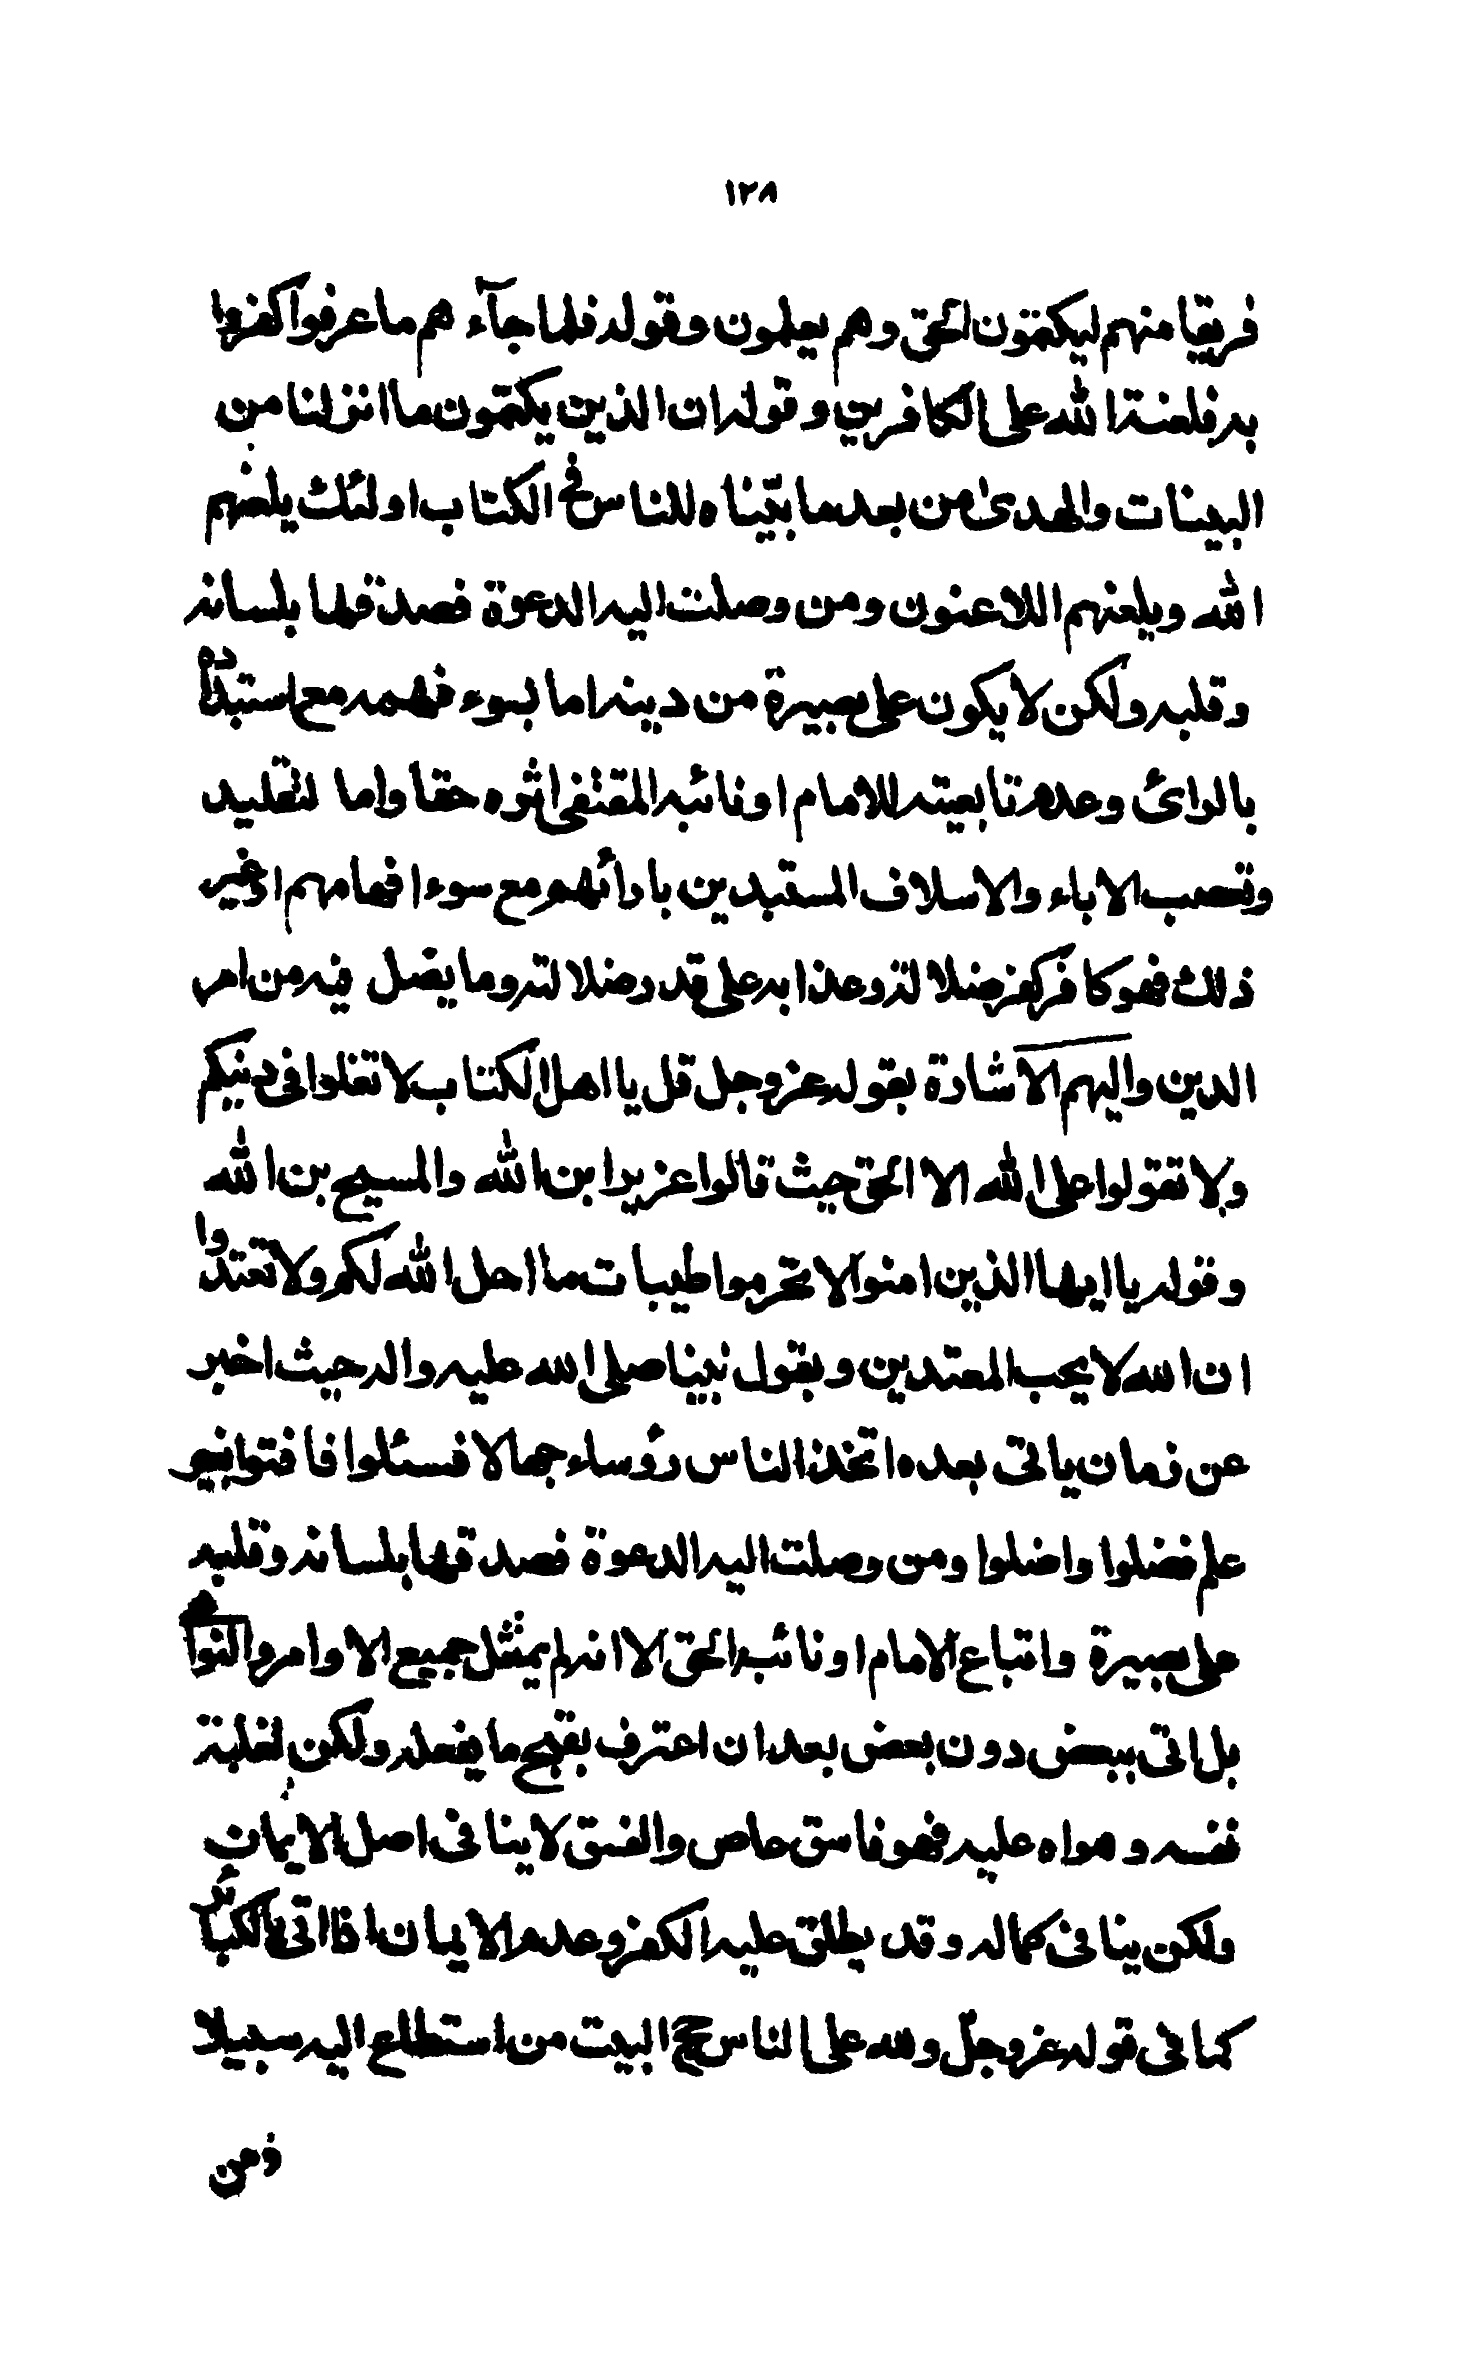 ١٢٨
فريقا منهم ليكتمون الحق وهم يعلمون وقوله فلما جآءهم ما عرفوا كفروا
به فلعنة الله على الكافرين وقوله ان الذين يكتمون ما انزلنا من
البينات والهدى من بعد ما بيّناه للناس في الكتاب اولئك يلعنهم
الله ويلعنهم اللاعنون ومن وصلت اليه الدعوة فصدقها بلسانه
وقلبه ولكن لا يكون على بصيرة من دينه اما لسوء فهمه مع استبداده
بالرائ وعدم تابعيته للامام او نائبه المقتفى اثره حقا واما لتقليد
وتعصب الاباء والاسلاف المستبدين بارائهم مع سوء افهامهم او غير
ذلك فهو كافر كفر ضلالة وعذابه على قدر ضلالته وما يضل فيه من امر
الدين واليهم الاشارة بقوله عز وجل قل يا اهل الكتاب لا تغلوا فى دينكم
ولا تقولوا على الله الا الحق حيث قالوا عزير ابن الله والمسيح بن الله
وقوله يا ايها الذين امنوا لا تحرموا طيبات ما احل الله لكم ولا تعتدوا
ان الله لا يحب المعتدين وبقول نبينا صلى الله عليه واله حيث اخبر
عن زمان ياتى بعده اتخذ الناس رؤساء جهالا فسئلوا فافتوا بغير
علم فضلوا واضلوا ومن وصلت اليه الدعوة فصدقها بلسانه وقلبه
على بصيرة واتباع الامام او نائبه الحق الا انه لم يمتثل جميع الاوامر والنواهى
بل اتى ببعض دون بعض بعد ان اعترف بقبح ما يفعله ولكن لغلبة
نفسه وهواه عليه فهو فاسق عاص والفسق لا ينافى اصل الايمان
ولكن ينافى كماله وقد يطلق عليه الكفر وعدم الايمان اذا اتى بالكبائر
كما في قوله عز وجلّ ولله على الناس حج البيت من استطاع اليه سبيلا
ومن